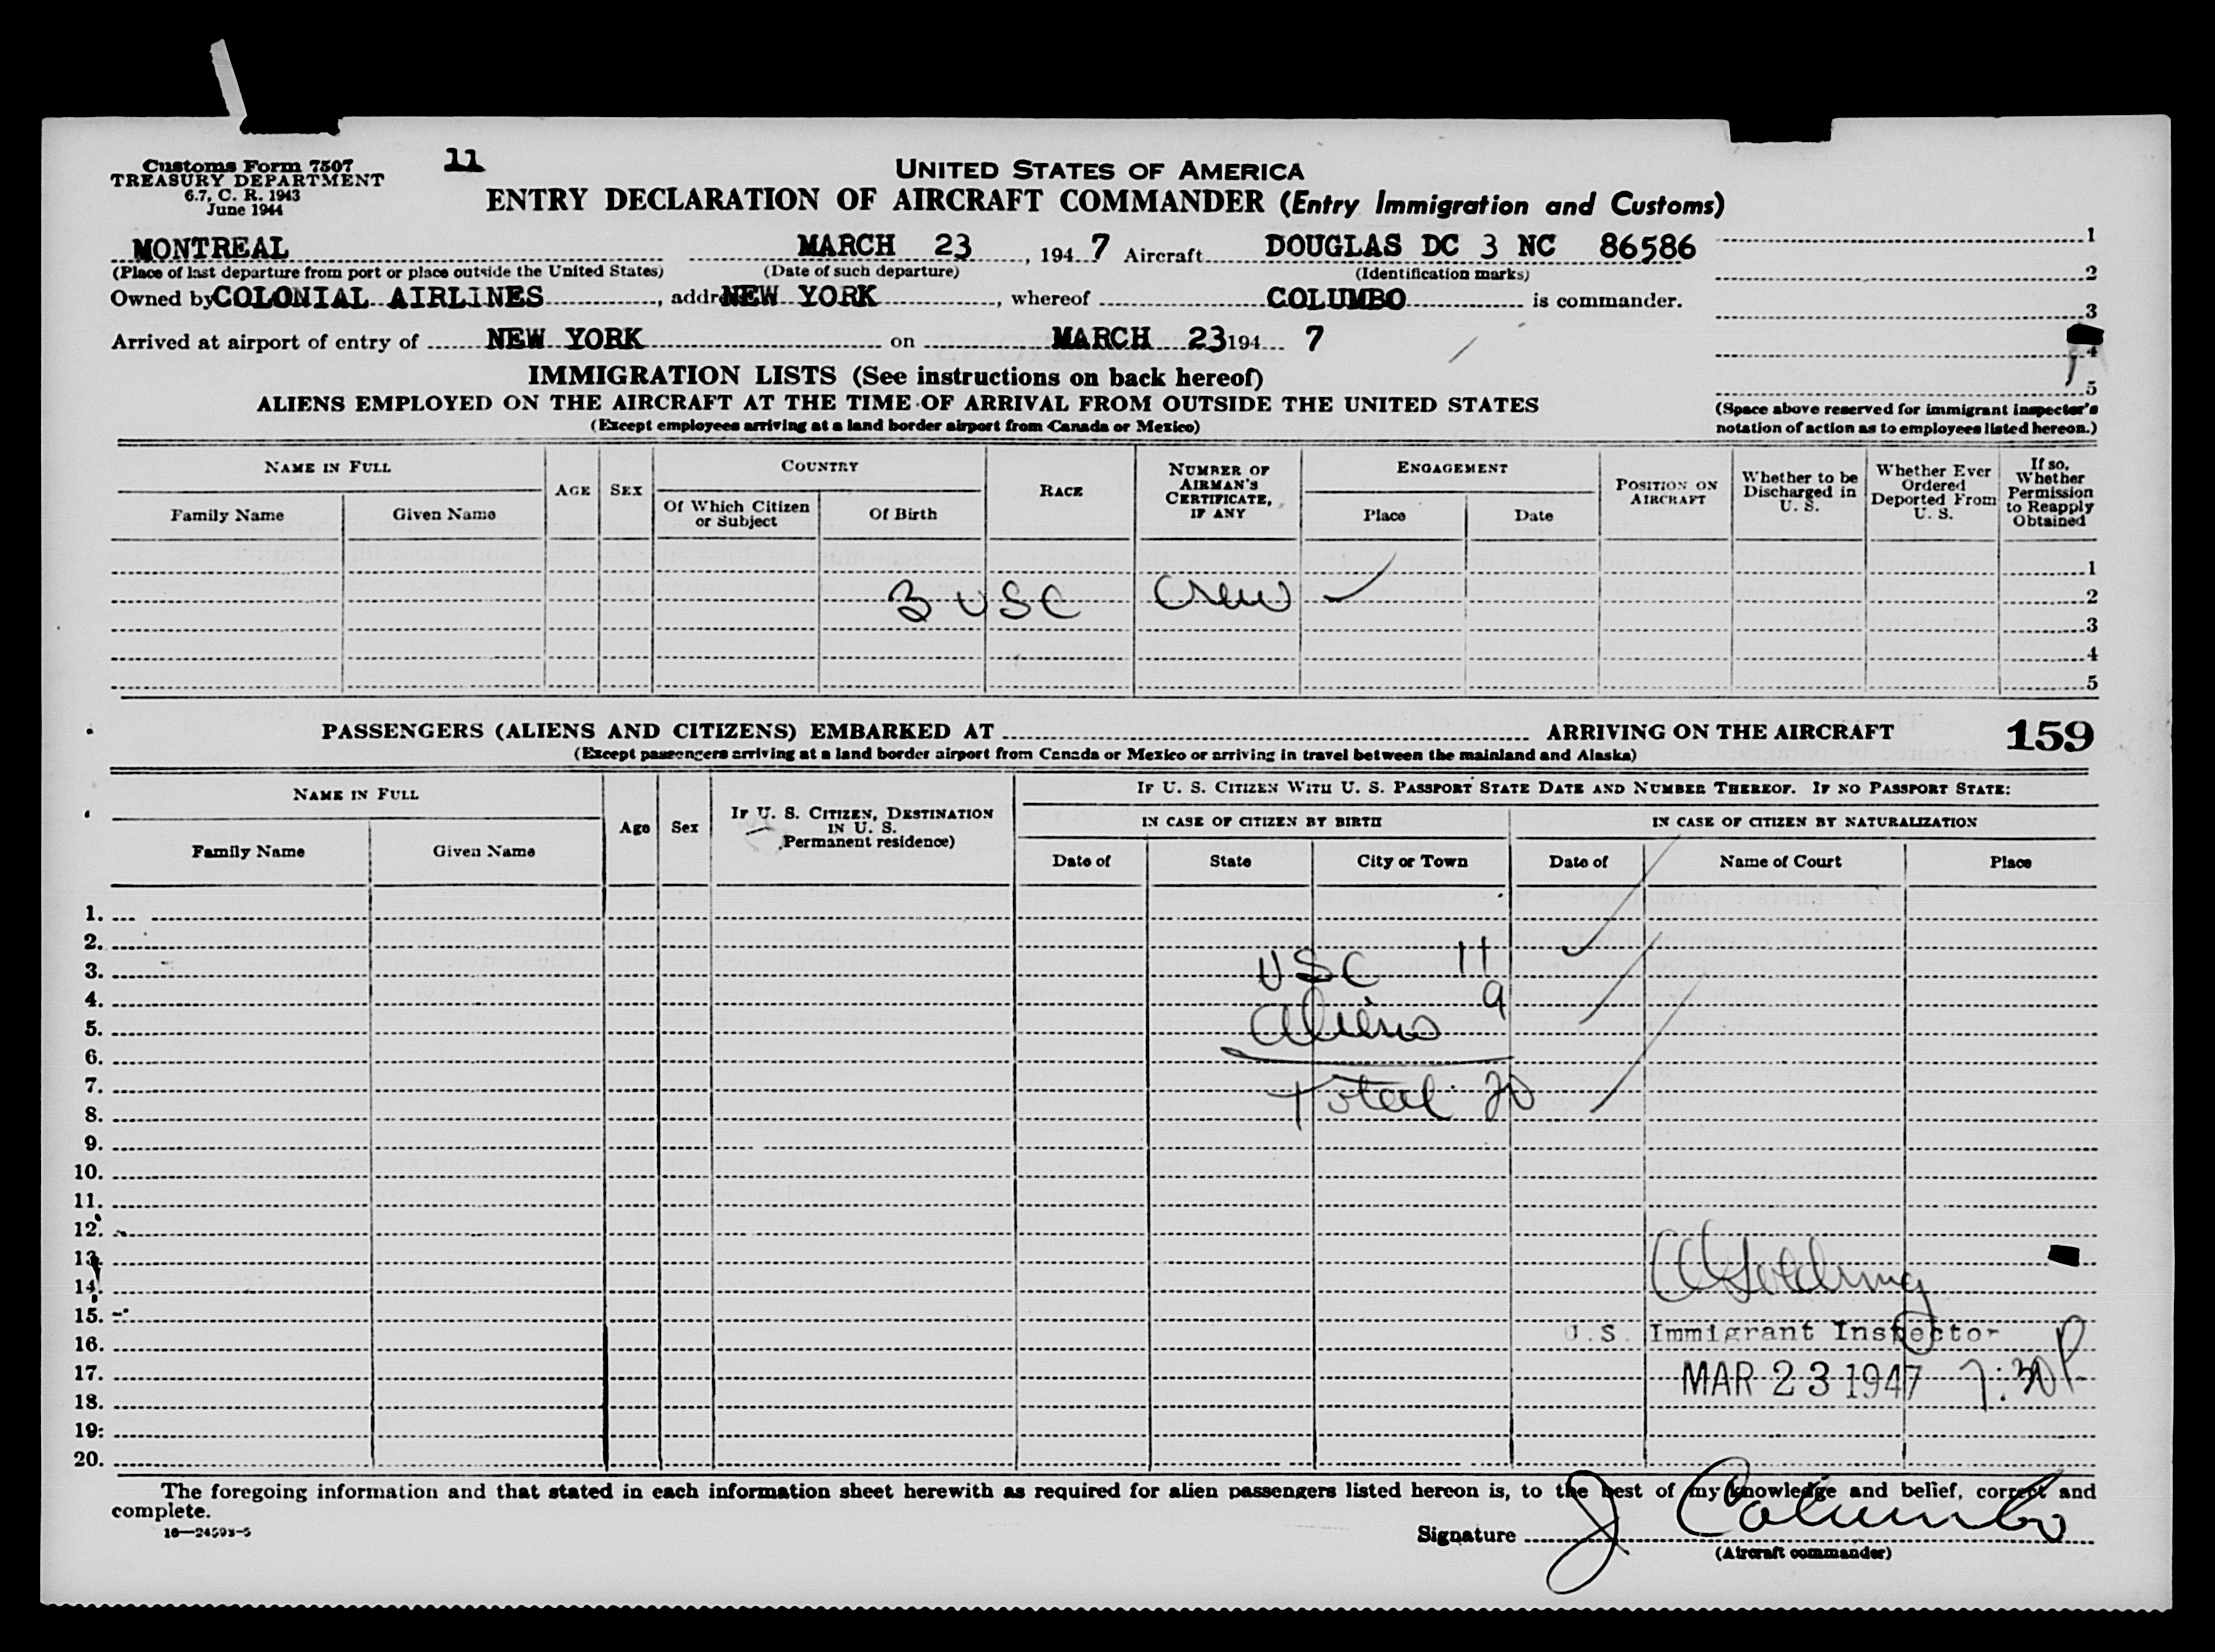 Customs Form 7507
TREASURY DEPARTMENT
6.7, C. R. 1943
June 1944
11
UNITED STATES OF AMERICA
ENTRY DECLARATION OF AIRCRAFT COMMANDER (Entry Immigration and Customs)
MONTREAL MARCH 23, 194 7 Aircraft DOUGLAS DC 3 NC 86586
(Place of last departure from port or place outside the United States) (Date of such departure) (Identification marks)
Owned by COLONIAL AIRLINES, addre NEW YORK, whereof COLUMBO is commander.
Arrived at airport of entry of NEW YORK on MARCH 23 194 7
1
2
3
4
5
(Space above reserved for immigrant inspector's
notation of action as to employees listed hereon.)
IMMIGRATION LISTS (See instructions on back hereof)
ALIENS EMPLOYED ON THE AIRCRAFT AT THE TIME OF ARRIVAL FROM OUTSIDE THE UNITED STATES
(Except employees arriving at a land border airport from Canada or Mexico)
NAME IN FULL
Family Name
Given Name
AGE
SEX
COUNTRY
Of Which Citizen
or Subject
Of Birth
RACE
NUMBER OF
AIRMAN'S
CERTIFICATE,
IF ANY
ENGAGEMENT
Place
Date
POSITION ON
AIRCRAFT
Whether to be
Discharged in
U. S.
Whether Ever
Ordered
Deported From
U. S.
If so,
Whether
Permission
to Reapply
Obtained
1
3 USC Crew ✓ 2
3
4
5
PASSENGERS (ALIENS AND CITIZENS) EMBARKED AT ARRIVING ON THE AIRCRAFT 159
(Except passengers arriving at a land border airport from Canada or Mexico or arriving in travel between the mainland and Alaska)
NAME IN FULL
Family Name
Given Name
Age
Sex
IF U. S. CITIZEN, DESTINATION
IN U. S.
Permanent residence)
IF U. S. CITIZEN WITH U. S. PASSPORT STATE DATE AND NUMBER THEREOF. IF NO PASSPORT STATE:
IN CASE OF CITIZEN BY BIRTH
IN CASE OF CITIZEN BY NATURALIZATION
Date of
State
City or Town
Date of
Name of Court
Place
1.
2.
3. USC 11 ✓
4.
5. Aliens 9
6.
7.
8. Total 20
9.
10.
11.
12.
13.
14.
15.
16. U.S. Immigrant Inspector
17. MAR 23 1947 7:30 P
18.
19.
20.
The foregoing information and that stated in each information sheet herewith as required for alien passengers listed hereon is, to the best of my knowledge and belief, correct and
complete.
16—24593-5
Signature J Columbo
(Aircraft commander)